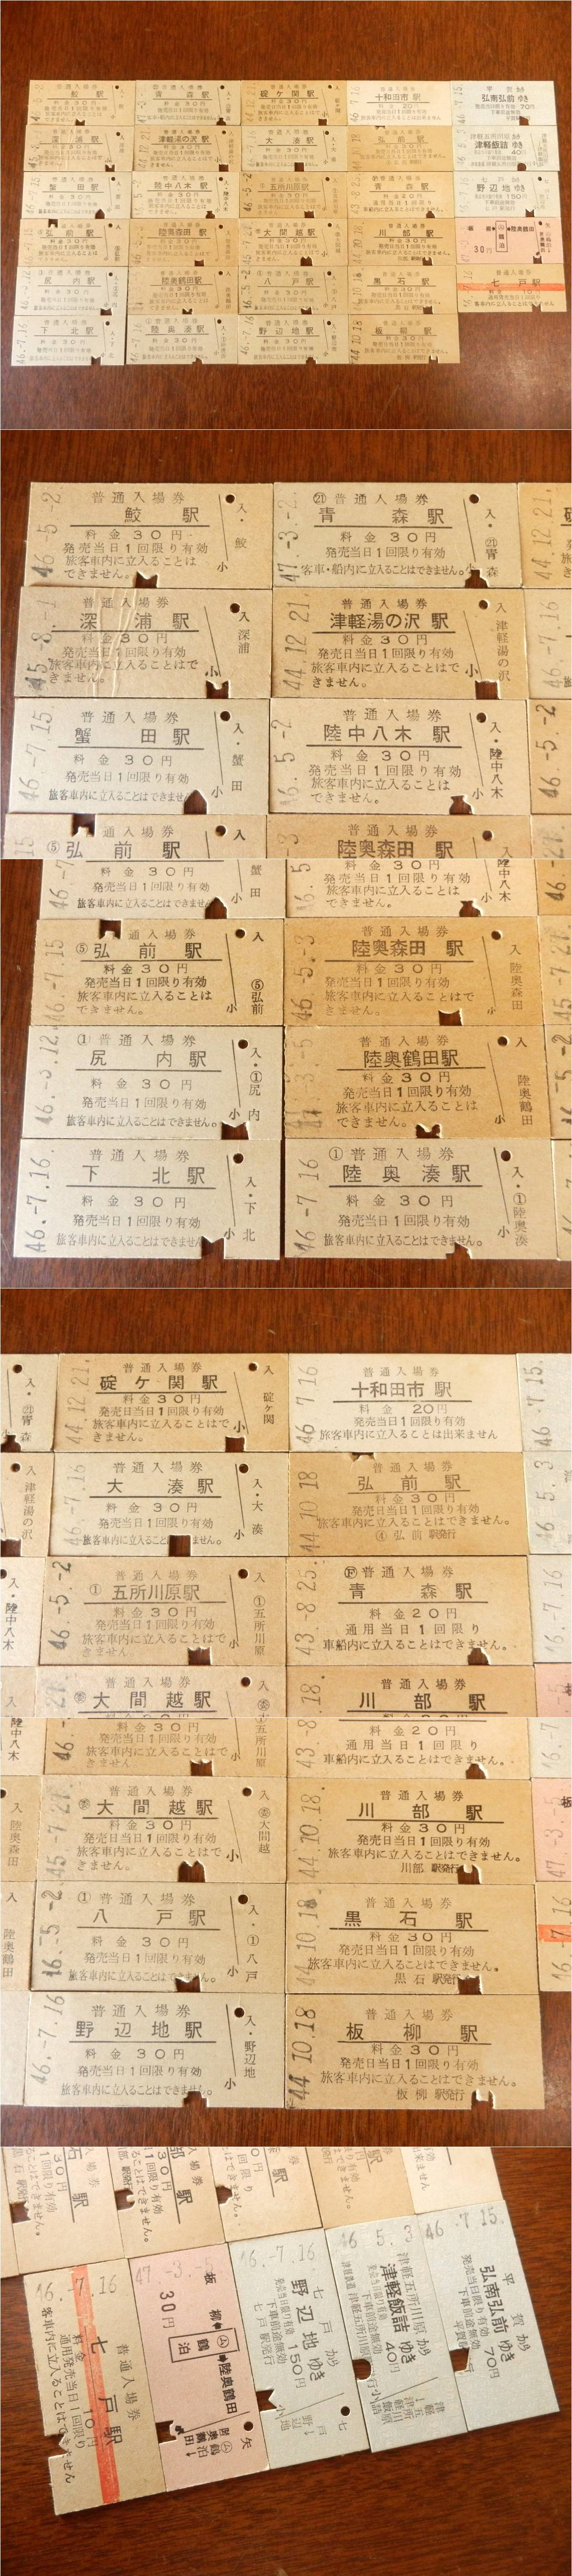 普通入場券
鮫駅
料金30円
発売当日1回限り有効
旅客車内に立入ることは
できません。
小
入・鮫
46.-5.-2
㉑普通入場券
青森駅
料金30円
発売当日1回限り有効
客車・船内に立入ることはできません。
小
入・㉑青森
47.-3.-2
普通入場券
深浦駅
料金30円
発売当日1回限り有効
旅客車内に立入ることはで
きません。
小
入 深浦
普通入場券
津軽湯の沢駅
料金30円
発売日当日1回限り有効
旅客車内に立入ることはで
きません。
小
入 津軽湯の沢
44.12.21.
普通入場券
蟹田駅
料金30円
発売当日1回限り有効
旅客車内に立入ることはできません
小
入・蟹田
46.-7.15.
普通入場券
陸中八木駅
料金30円
発売当日1回限り有効
旅客車内に立入ることは
できません。
小
入・陸中八木
46.-5.-2
⑤弘前駅
料金30円
発売当日1回限り有効
旅客車内に立入ることは
できません。
小
入 ⑤弘前
46.-7.15
普通入場券
陸奥森田駅
料金30円
発売当日1回限り有効
旅客車内に立入ることは
できません。
小
入 陸奥森田
46.-5.-3
①普通入場券
尻内駅
料金30円
発売当日1回限り有効
旅客車内に立入ることはできません。
小
入・①尻内
46.-3.12.
普通入場券
陸奥鶴田駅
料金30円
発売当日1回限り有効
旅客車内に立入ることは
できません。
小
入 陸奥鶴田
普通入場券
下北駅
料金30円
発売当日1回限り有効
旅客車内に立入ることはできません
小
入・下北
46.-7.16.
①普通入場券
陸奥湊駅
料金30円
発売当日1回限り有効
旅客車内に立入ることはできません。
小
入・①陸奥湊
46.-7.16
普通入場券
碇ヶ関駅
料金30円
発売日当日1回限り有効
旅客車内に立入ることはで
きません。
小
入 碇ヶ関
44.12.21.
普通入場券
十和田市駅
料金20円
発売当日1回限り有効
旅客車内に立入ることは出来ません
46 7 16
普通入場券
大湊駅
料金30円
発売当日1回限り有効
旅客車内に立入ることはできません。
小
入・大湊
46.-7.16
普通入場券
弘前駅
料金30円
発売日当日1回限り有効
旅客車内に立入ることはできません。
④弘前駅発行
44 10 18
普通入場券
①五所川原駅
料金30円
発売当日1回限り有効
旅客車内に立入ることはで
きません。
小
入 ①五所川原
46.-5.-2
普通入場券
青森駅
料金20円
通用当日1回限り
車船内に立入ることはできません。
43.-8.25.
普通入場券
大間越駅
料金30円
発売日当日1回限り有効
旅客車内に立入ることはで
きません。
小
大間越
45.-7.27.
普通入場券
川部駅
料金30円
発売日当日1回限り有効
旅客車内に立入ることはできません。
川部駅発行
44.10.18.
①普通入場券
八戸駅
料金30円
発売当日1回限り有効
旅客車内に立入ることはできません。
小
入・①八戸
46.-5.-2
普通入場券
黒石駅
料金30円
発売日当日1回限り有効
旅客車内に立入ることはできません。
黒石駅発行
44.10.18.
普通入場券
野辺地駅
料金30円
発売当日1回限り有効
旅客車内に立入ることはできません。
小
入・野辺地
46.-7.16
普通入場券
板柳駅
料金30円
発売日当日1回限り有効
旅客車内に立入ることはできません。
板柳駅発行
44.10.18
普通入場券
七戸駅
料金10円
通用発売当日1回限り
客車内に立入ることはできません
46.-7.16
板柳 陸奥鶴田
鶴泊
30円
七戸から
野辺地ゆき
150円
発売当日限り有効
下車前途無効
七戸駅発行
46.-7.16
津軽五所川原から
津軽飯詰ゆき
40円
発売当日限り有効
下車前途無効
46 5. 3
平賀から
弘南弘前ゆき
70円
発売当日限り有効
下車前途無効
46 -7.15.